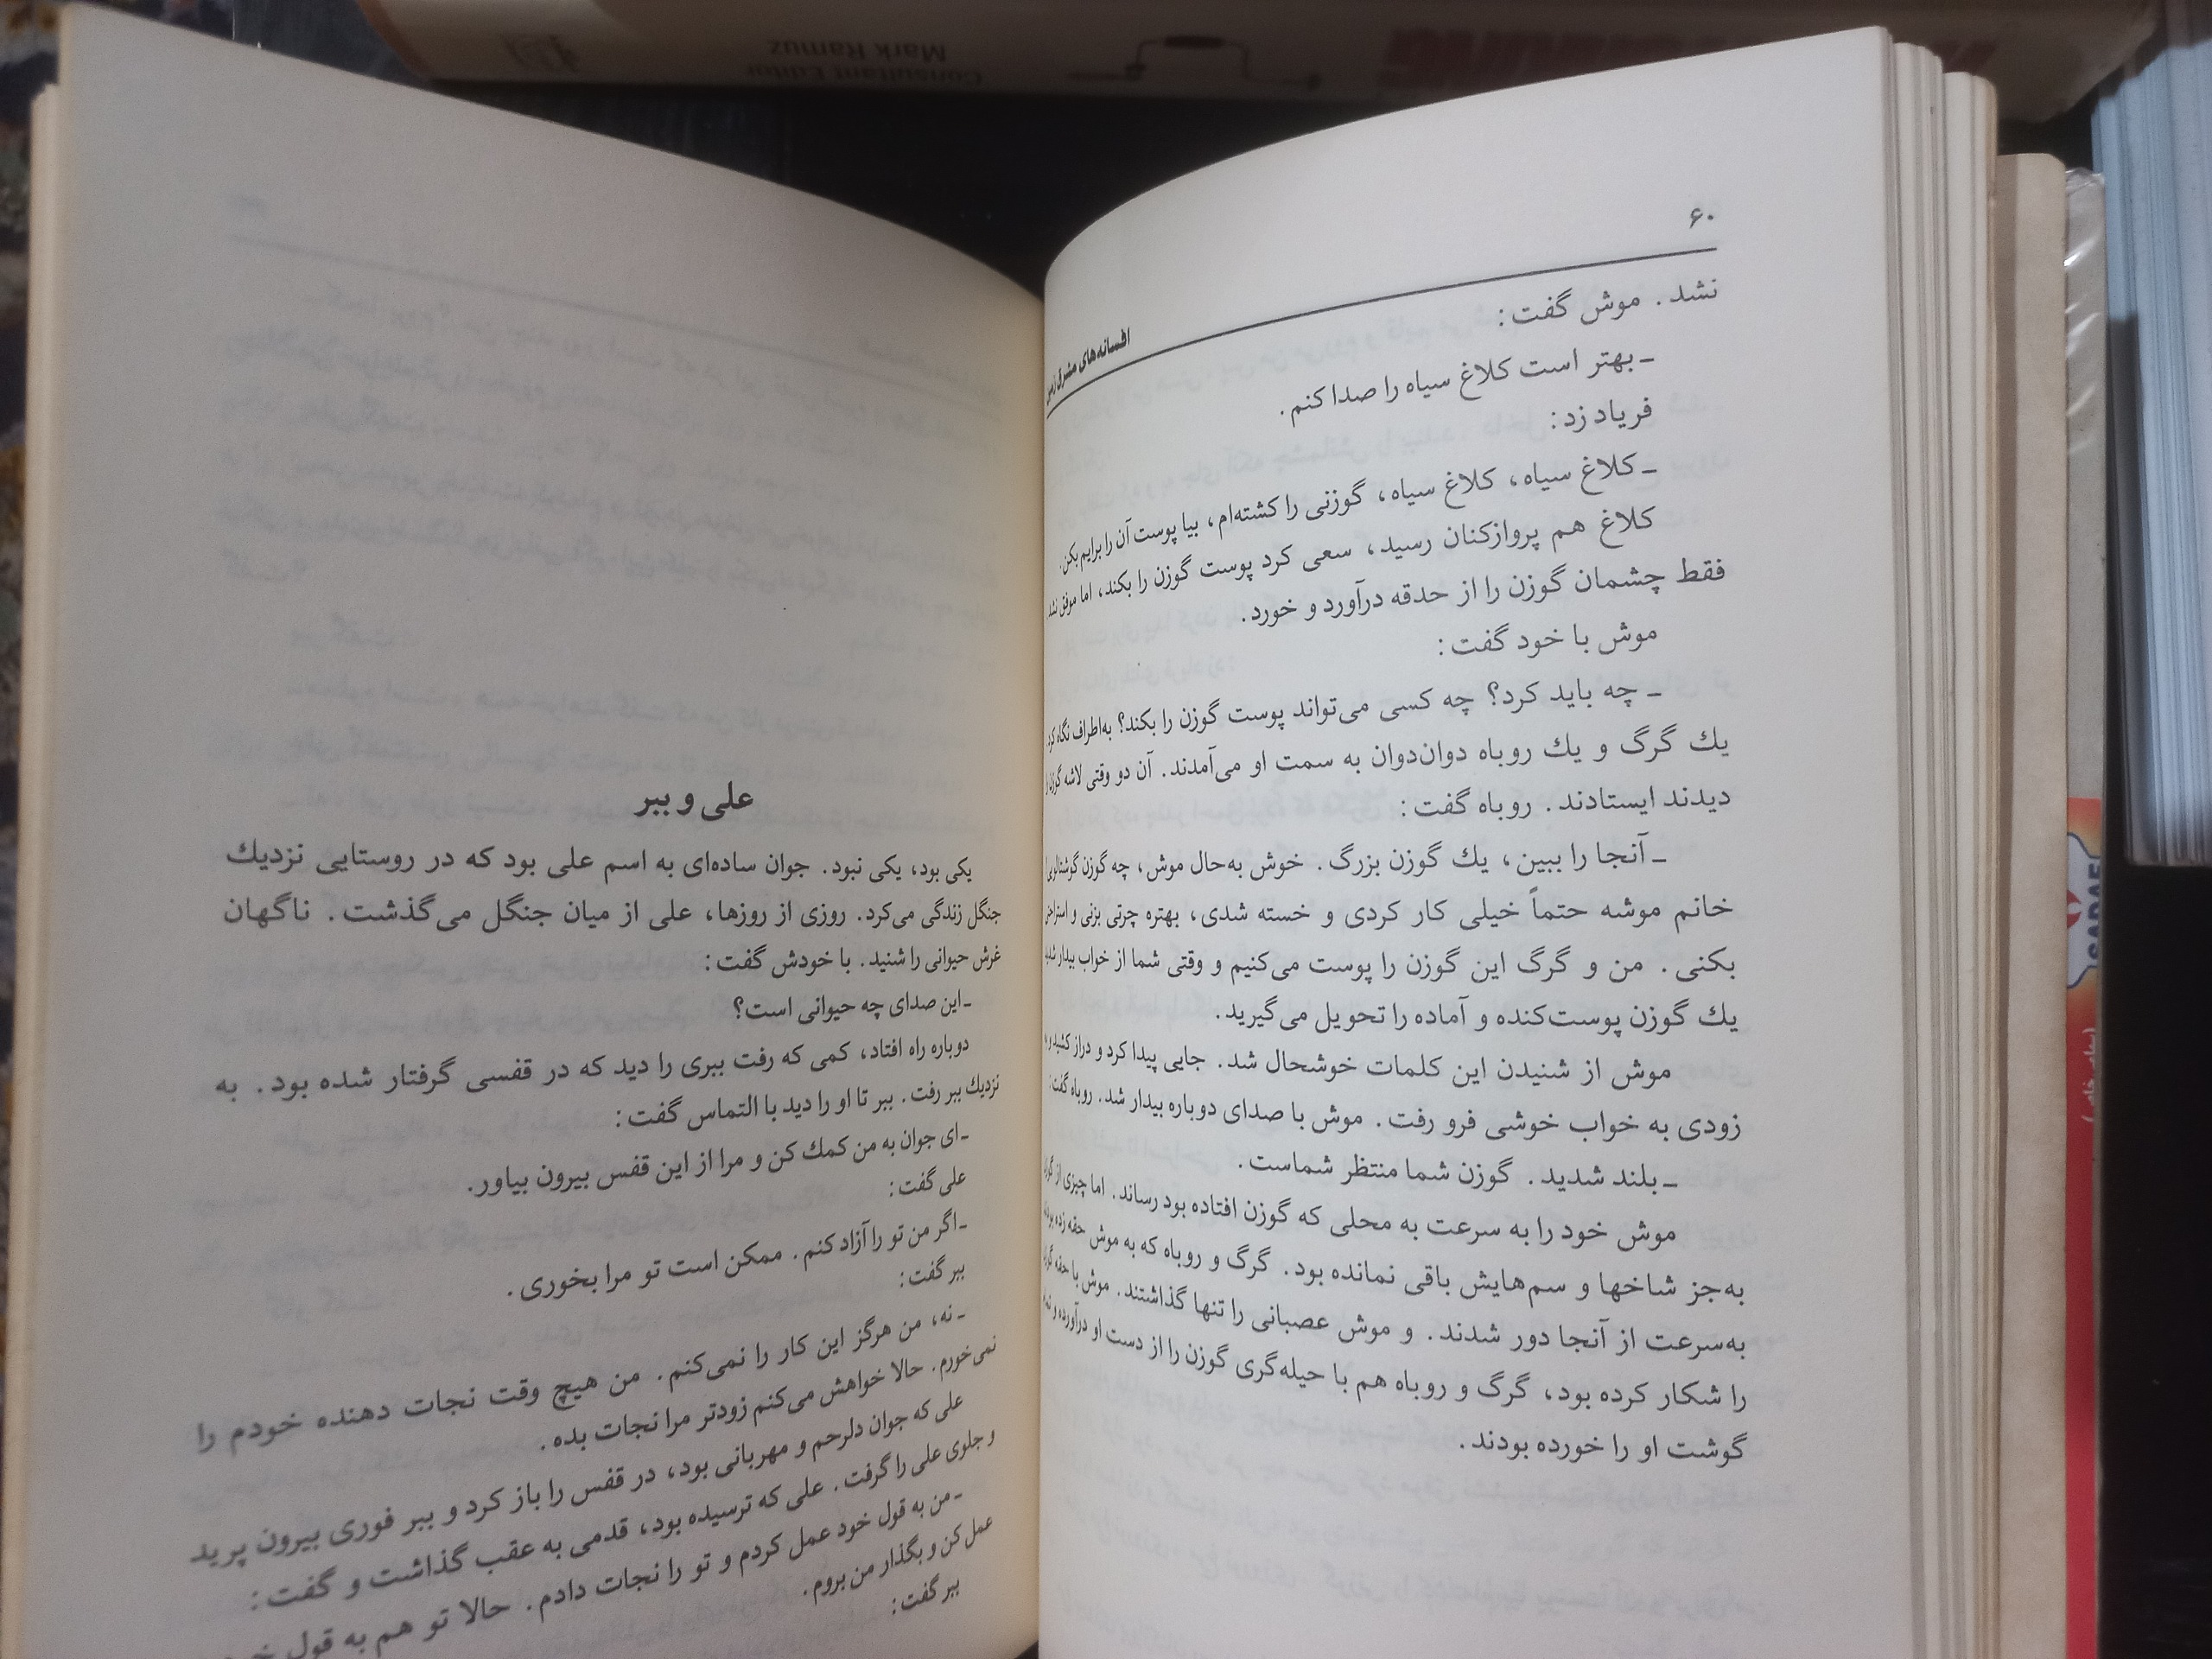 Consultant Editor
Mark Ramuz
۶۰
افسانه‌های مشرق زمین
نشد. موش گفت:
ـ بهتر است کلاغ سیاه را صدا کنم.
فریاد زد:
ـ کلاغ سیاه، کلاغ سیاه، گوزنی را کشته‌ام، بیا پوست آن را برایم بکن.
کلاغ هم پروازکنان رسید، سعی کرد پوست گوزن را بکند، اما موفق نشد
فقط چشمان گوزن را از حدقه درآورد و خورد.
موش با خود گفت:
ـ چه باید کرد؟ چه کسی می‌تواند پوست گوزن را بکند؟ به‌اطراف نگاه کرد
یك گرگ و یك روباه دوان‌دوان به سمت او می‌آمدند. آن دو وقتی لاشه گوزن را
دیدند ایستادند. روباه گفت:
ـ آنجا را ببین، یك گوزن بزرگ. خوش به‌حال موش، چه گوزن
خانم موشه حتماً خیلی کار کردی و خسته شدی، بهتره چرتی بزنی و
بکنی. من و گرگ این گوزن را پوست می‌کنیم و وقتی شما از خواب بیدار شدید
یك گوزن پوست‌کنده و آماده را تحویل می‌گیرید.
موش از شنیدن این کلمات خوشحال شد. جایی پیدا کرد و دراز کشید و
زودی به خواب خوشی فرو رفت. موش با صدای دوباره بیدار شد. روباه گفت:
ـ بلند شدید. گوزن شما منتظر شماست.
موش خود را به سرعت به محلی که گوزن افتاده بود رساند. اما چیزی از
به‌جز شاخها و سم‌هایش باقی نمانده بود. گرگ و روباه که به موش حقه زده بودند
به‌سرعت از آنجا دور شدند. و موش عصبانی را تنها گذاشتند. موش با حقه
را شکار کرده بود، گرگ و روباه هم با حیله‌گری گوزن را از دست او درآورده و
گوشت او را خورده بودند.
علی و ببر
یکی بود، یکی نبود. جوان ساده‌ای به اسم علی بود که در روستایی نزدیك
جنگل زندگی می‌کرد. روزی از روزها، علی از میان جنگل می‌گذشت. ناگهان
غرش حیوانی را شنید. با خودش گفت:
ـ این صدای چه حیوانی است؟
دوباره راه افتاد، کمی که رفت ببری را دید که در قفسی گرفتار شده بود. به
نزدیك ببر رفت. ببر تا او را دید با التماس گفت:
ـ ای جوان به من کمك کن و مرا از این قفس بیرون بیاور.
علی گفت:
ـ اگر من تو را آزاد کنم. ممکن است تو مرا بخوری.
ببر گفت:
ـ نه، من هرگز این کار را نمی‌کنم. من هیچ وقت نجات دهنده خودم را
نمی‌خورم. حالا خواهش می‌کنم زودتر مرا نجات بده.
علی که جوان دلرحم و مهربانی بود، در قفس را باز کرد و ببر فوری بیرون پرید
و جلوی علی را گرفت. علی که ترسیده بود، قدمی به عقب گذاشت و گفت:
ـ من به قول خود عمل کردم و تو را نجات دادم. حالا تو هم به قول
عمل کن و بگذار من بروم.
ببر گفت: